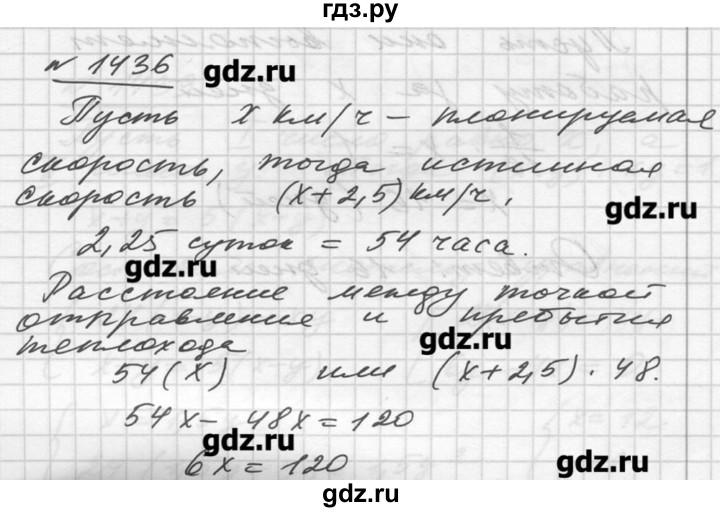 гдз.ру
№ 1436
gdz.ru
Пусть х км/ч – планируемая
скорость, тогда истинная
скорость (х+2,5) км/ч,
gdz.ru
2,25 суток = 54 часа.
gdz.ru
Расстояние между точкой
отправления и прибытия
теплохода
gdz.ru
54(х) или (х+2,5)·48.
54х – 48х = 120
gdz.ru
6х = 120
gdz.ru
gdz.ru